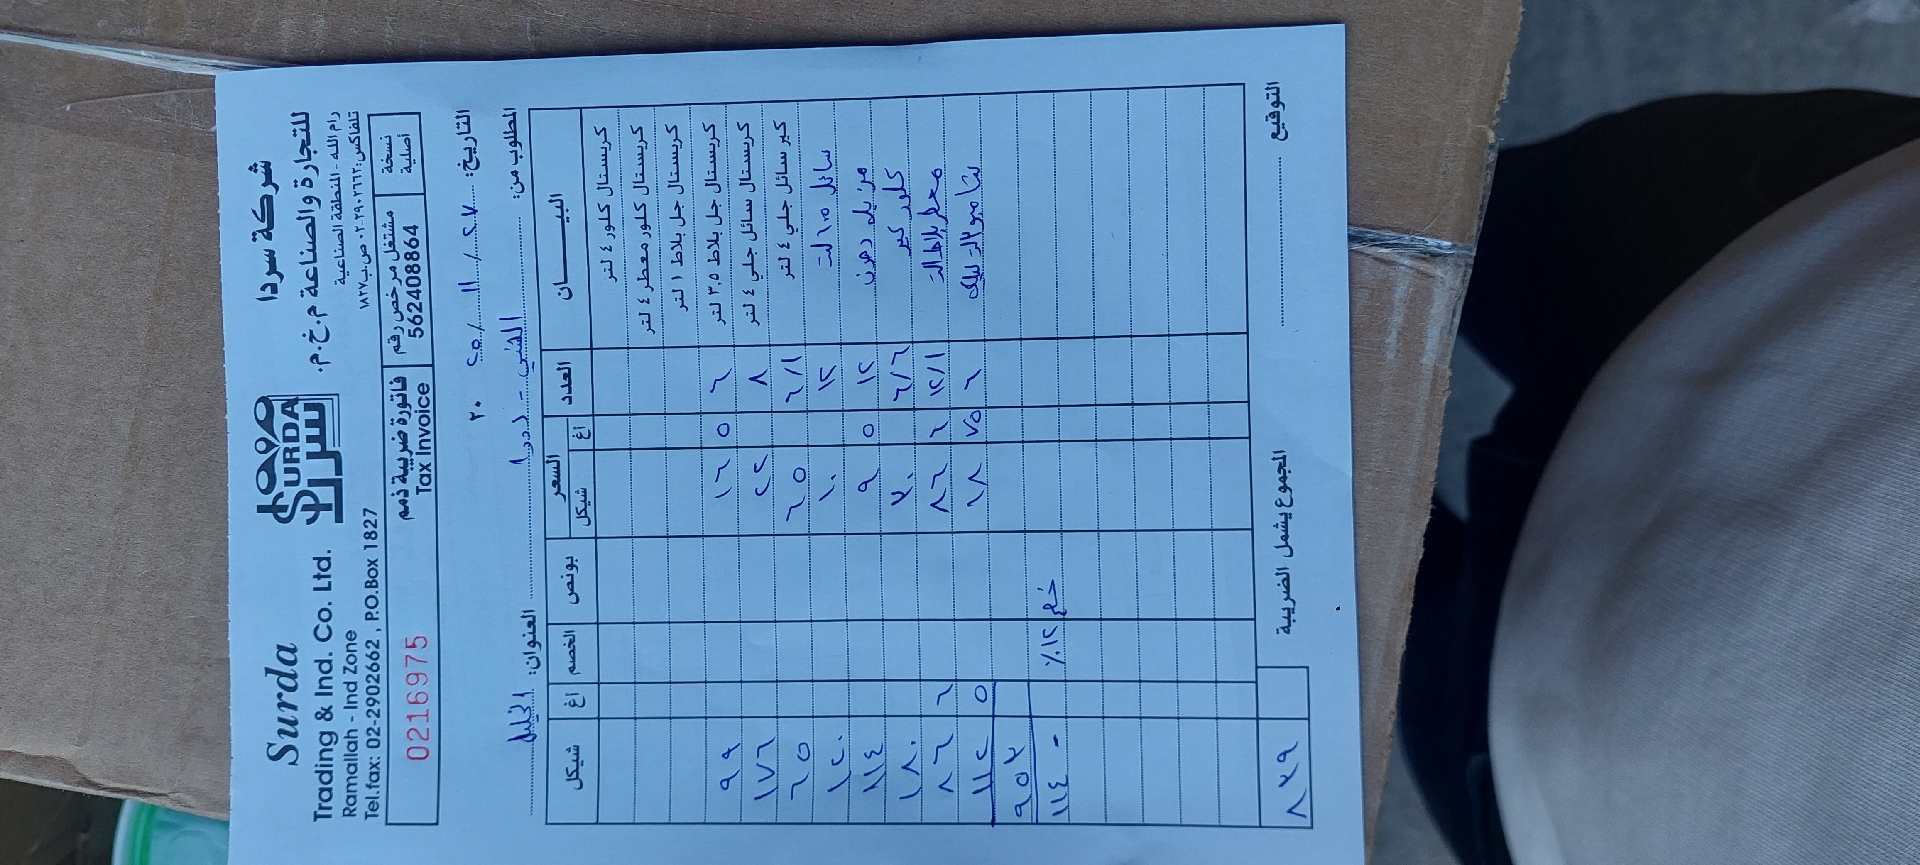 Surda
Trading & Ind. Co. Ltd.
Ramallah - Ind Zone
Tel.fax: 02-2902662 , P.O.Box 1827
SURDA
سردا
شركة سردا
للتجارة والصناعة م.خ.م.
رام الله - المنطقة الصناعية
تلفاكس: ٠٢-٢٩٠٢٦٦٢ ص.ب ١٨٢٧
0216975
فاتورة ضريبية ذمم
Tax Invoice
مشتغل مرخص رقم
562408864
نسخة
أصلية
التاريخ: ٢٠٢٥ / ١١ /
المطلوب من:
العنوان: الخليل
البيــــان العدد السعر بونص الخصم أغ شيكل
شيكل أغ
كريستال كلور ٤ لتر
كريستال كلور معطر ٤ لتر
كريستال جل بلاط ١ لتر
كريستال جل بلاط ٣,٥ لتر ٦ ١٦ ٥ ٩٩
كريستال سائل جلي ٤ لتر ٨ ٢٢ ١٧٦
كير سائل جلي ٤ لتر ٦/١ ٦٥ ٦٥
سائل ١٢ ١٠ ١٢٠
مزيل دهون ١٢ ٩ ٥ ١١٤
كلور كير ٦/٦ ٣٠ ١٨٠
معطر بلاط ١٢/١ ٨٦ ٦ ٨٦ ٦
شامبو ٦ ١٨ ٧٥ ١١٢ ٥
٩٥٣
خصم ١٢٪ ١١٤ -
المجموع يشمل الضريبة ٨٣٩
التوقيع